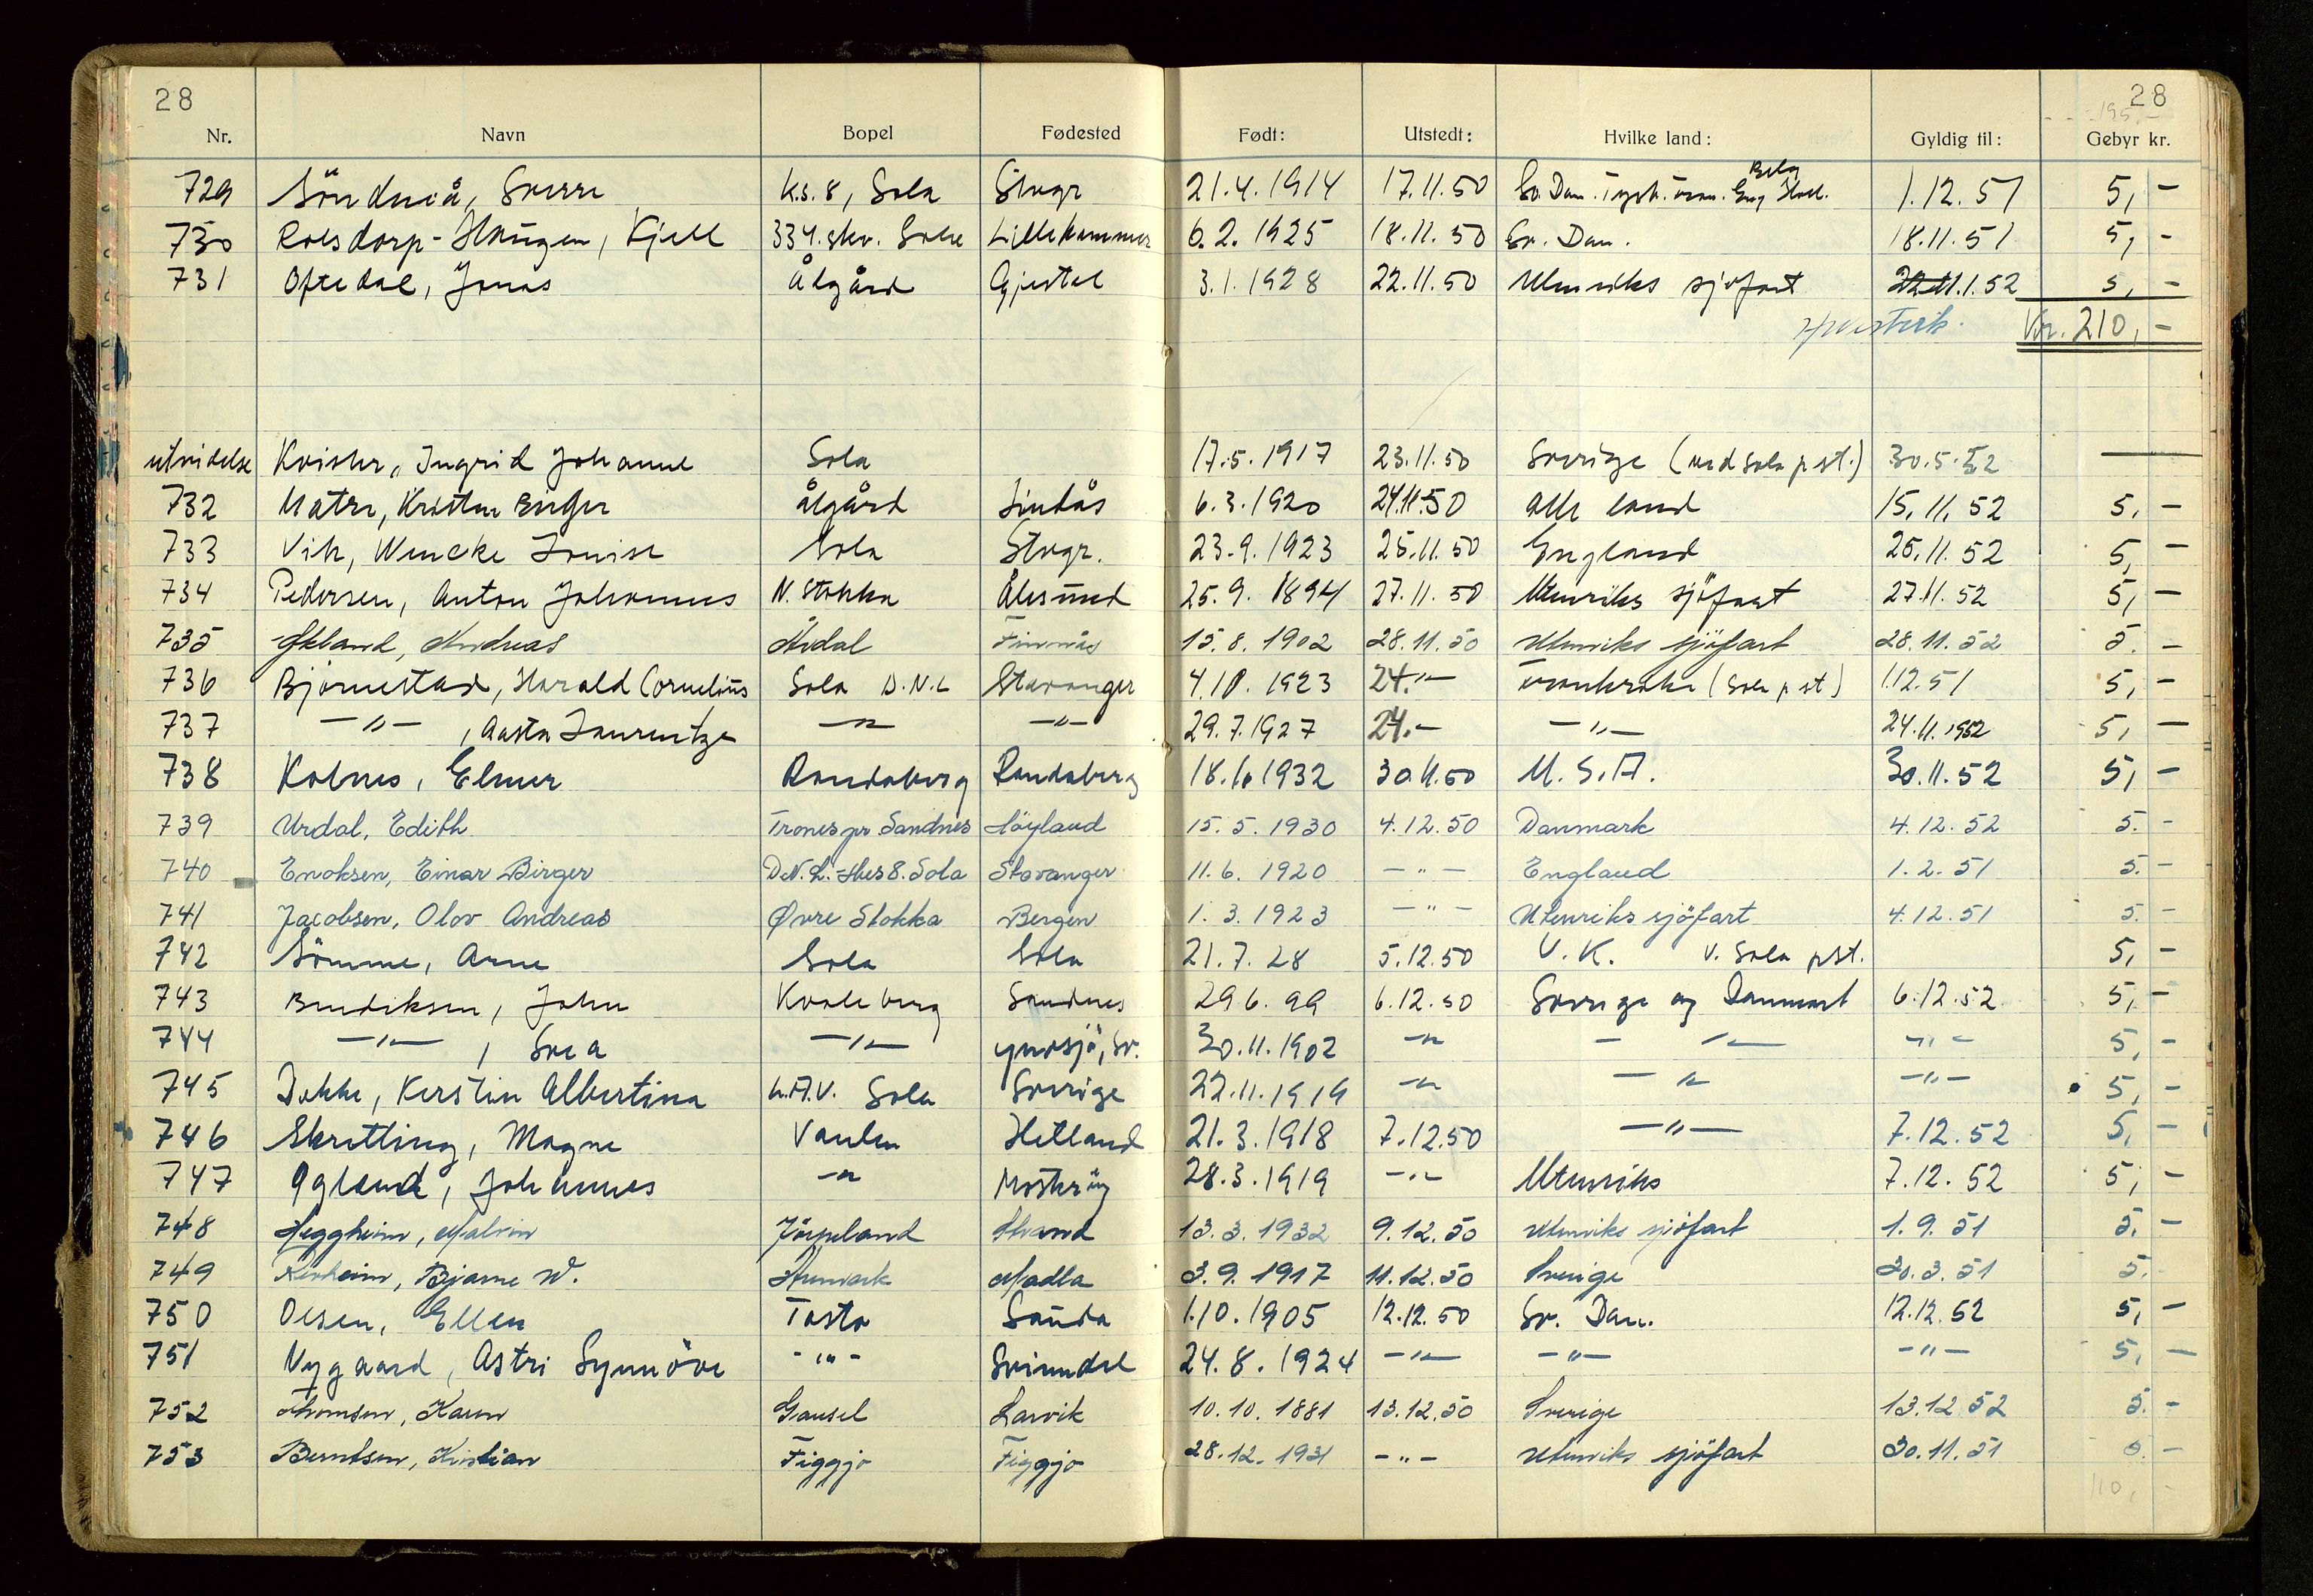 28 28
Nr. Navn Bopel Fødested Født: Utstedt: Hvilke land: Gyldig til: Gebyr kr.
729 Söndniå, Sverre k.s. 8, Sola Stvgr 21.4.1914 17.11.50 Sv. Dan. Tysk. Eng Holl. Belg 1.12.51 5,-
730 Rolsdorp-Haugen, Kjell 334. skv. Sola Lillehammer 6.2.1925 18.11.50 Sv. Dan. 18.11.51 5,-
731 Oftedal, Jonas Ålgård Gjestal 3.1.1928 22.11.50 Utenriks sjøfart 1.1.52 5,-
Kr. 210,-
utvidelse Kvister, Ingrid Johanne Sola 17.5.1917 23.11.50 Sverige (ved Sola p.st.) 30.5.52 —
732 Matre, Kristen Birger Ålgård Lindås 6.3.1920 24.11.50 Alle land 15.11.52 5,-
733 Vik, Wencke Louise Sola Stvgr. 23.9.1923 25.11.50 England 25.11.52 5,-
734 Pedersen, Anton Johannes N. Stokka Ålesund 25.9.1894 27.11.50 Utenriks sjöfart 27.11.52 5,-
735 Økland, Andreas Årdal Finnås 15.8.1902 28.11.50 Utenriks sjöfart 28.11.52 5.-
736 Bjørnestad, Harald Cornelius Sola D.N.L Stavanger 4.10.1923 24.-"- Frankrike (Sola p.st) 1.12.51 5,-
737 -"-, Aasta Laurentze -"- -"- 29.7.1927 24.- -"- 24.11.1952 5,-
738 Kolnes, Elmer Randaberg Randaberg 18.6.1932 30.11.50 U.S.A. 30.11.52 5,-
739 Urdal, Edith Trones pr Sandnes Höyland 15.5.1930 4.12.50 Danmark 4.12.52 5.-
740 Enoksen, Einar Birger D.N.L.-Hus 8. Sola Stavanger 11.6.1920 -"- England 1.2.51 5.-
741 Jacobsen, Olav Andreas Øvre Stokka Bergen 1.3.1923 -"- Utenriks sjöfart 4.12.51 5.-
742 Sömme, Arne Sola Sola 21.7.28 5.12.50 U.K. v. Sola pst. 5,-
743 Bendiksen, John Kvaleberg Sandnes 29.6.99 6.12.50 Sverige og Danmark 6.12.52 5,-
744 -"-, Svea -"- Sv. 30.11.1902 -"- -"- -"- 5,-
745 Dokke, Kerstin Albertina L.A.V. Sola Sverige 22.11.1919 -"- -"- -"- 5,-
746 Skretting, Magne Vaulen Hetland 21.3.1918 7.12.50 -"- 7.12.52 5,-
747 Ogland, Johannes -"- Mosterøy 28.3.1919 -"- Utenriks 7.12.52 5,-
748 Heggheim, Malvin Jörpeland Strand 13.3.1932 9.12.50 Utenriks sjöfart 1.9.51 5.-
749 Bjarne W. Madla 3.9.1917 11.12.50 Sverige 30.3.51 5.
750 Olsen, Ellen Tasta Sauda 1.10.1905 12.12.50 Sv. Dan. 12.12.52 5,-
751 Nygaard, Astri Synnöve -"- Svinndal 24.8.1924 -"- -"- -"- 5,-
752 Thomsen, Karen Gausel Larvik 10.10.1881 13.12.50 Sverige 13.12.52 5.-
753 Berntsen, Kristian Figgjo Figgjo 28.12.1931 -"- Utenriks sjöfart 30.11.51 5.-
110,-